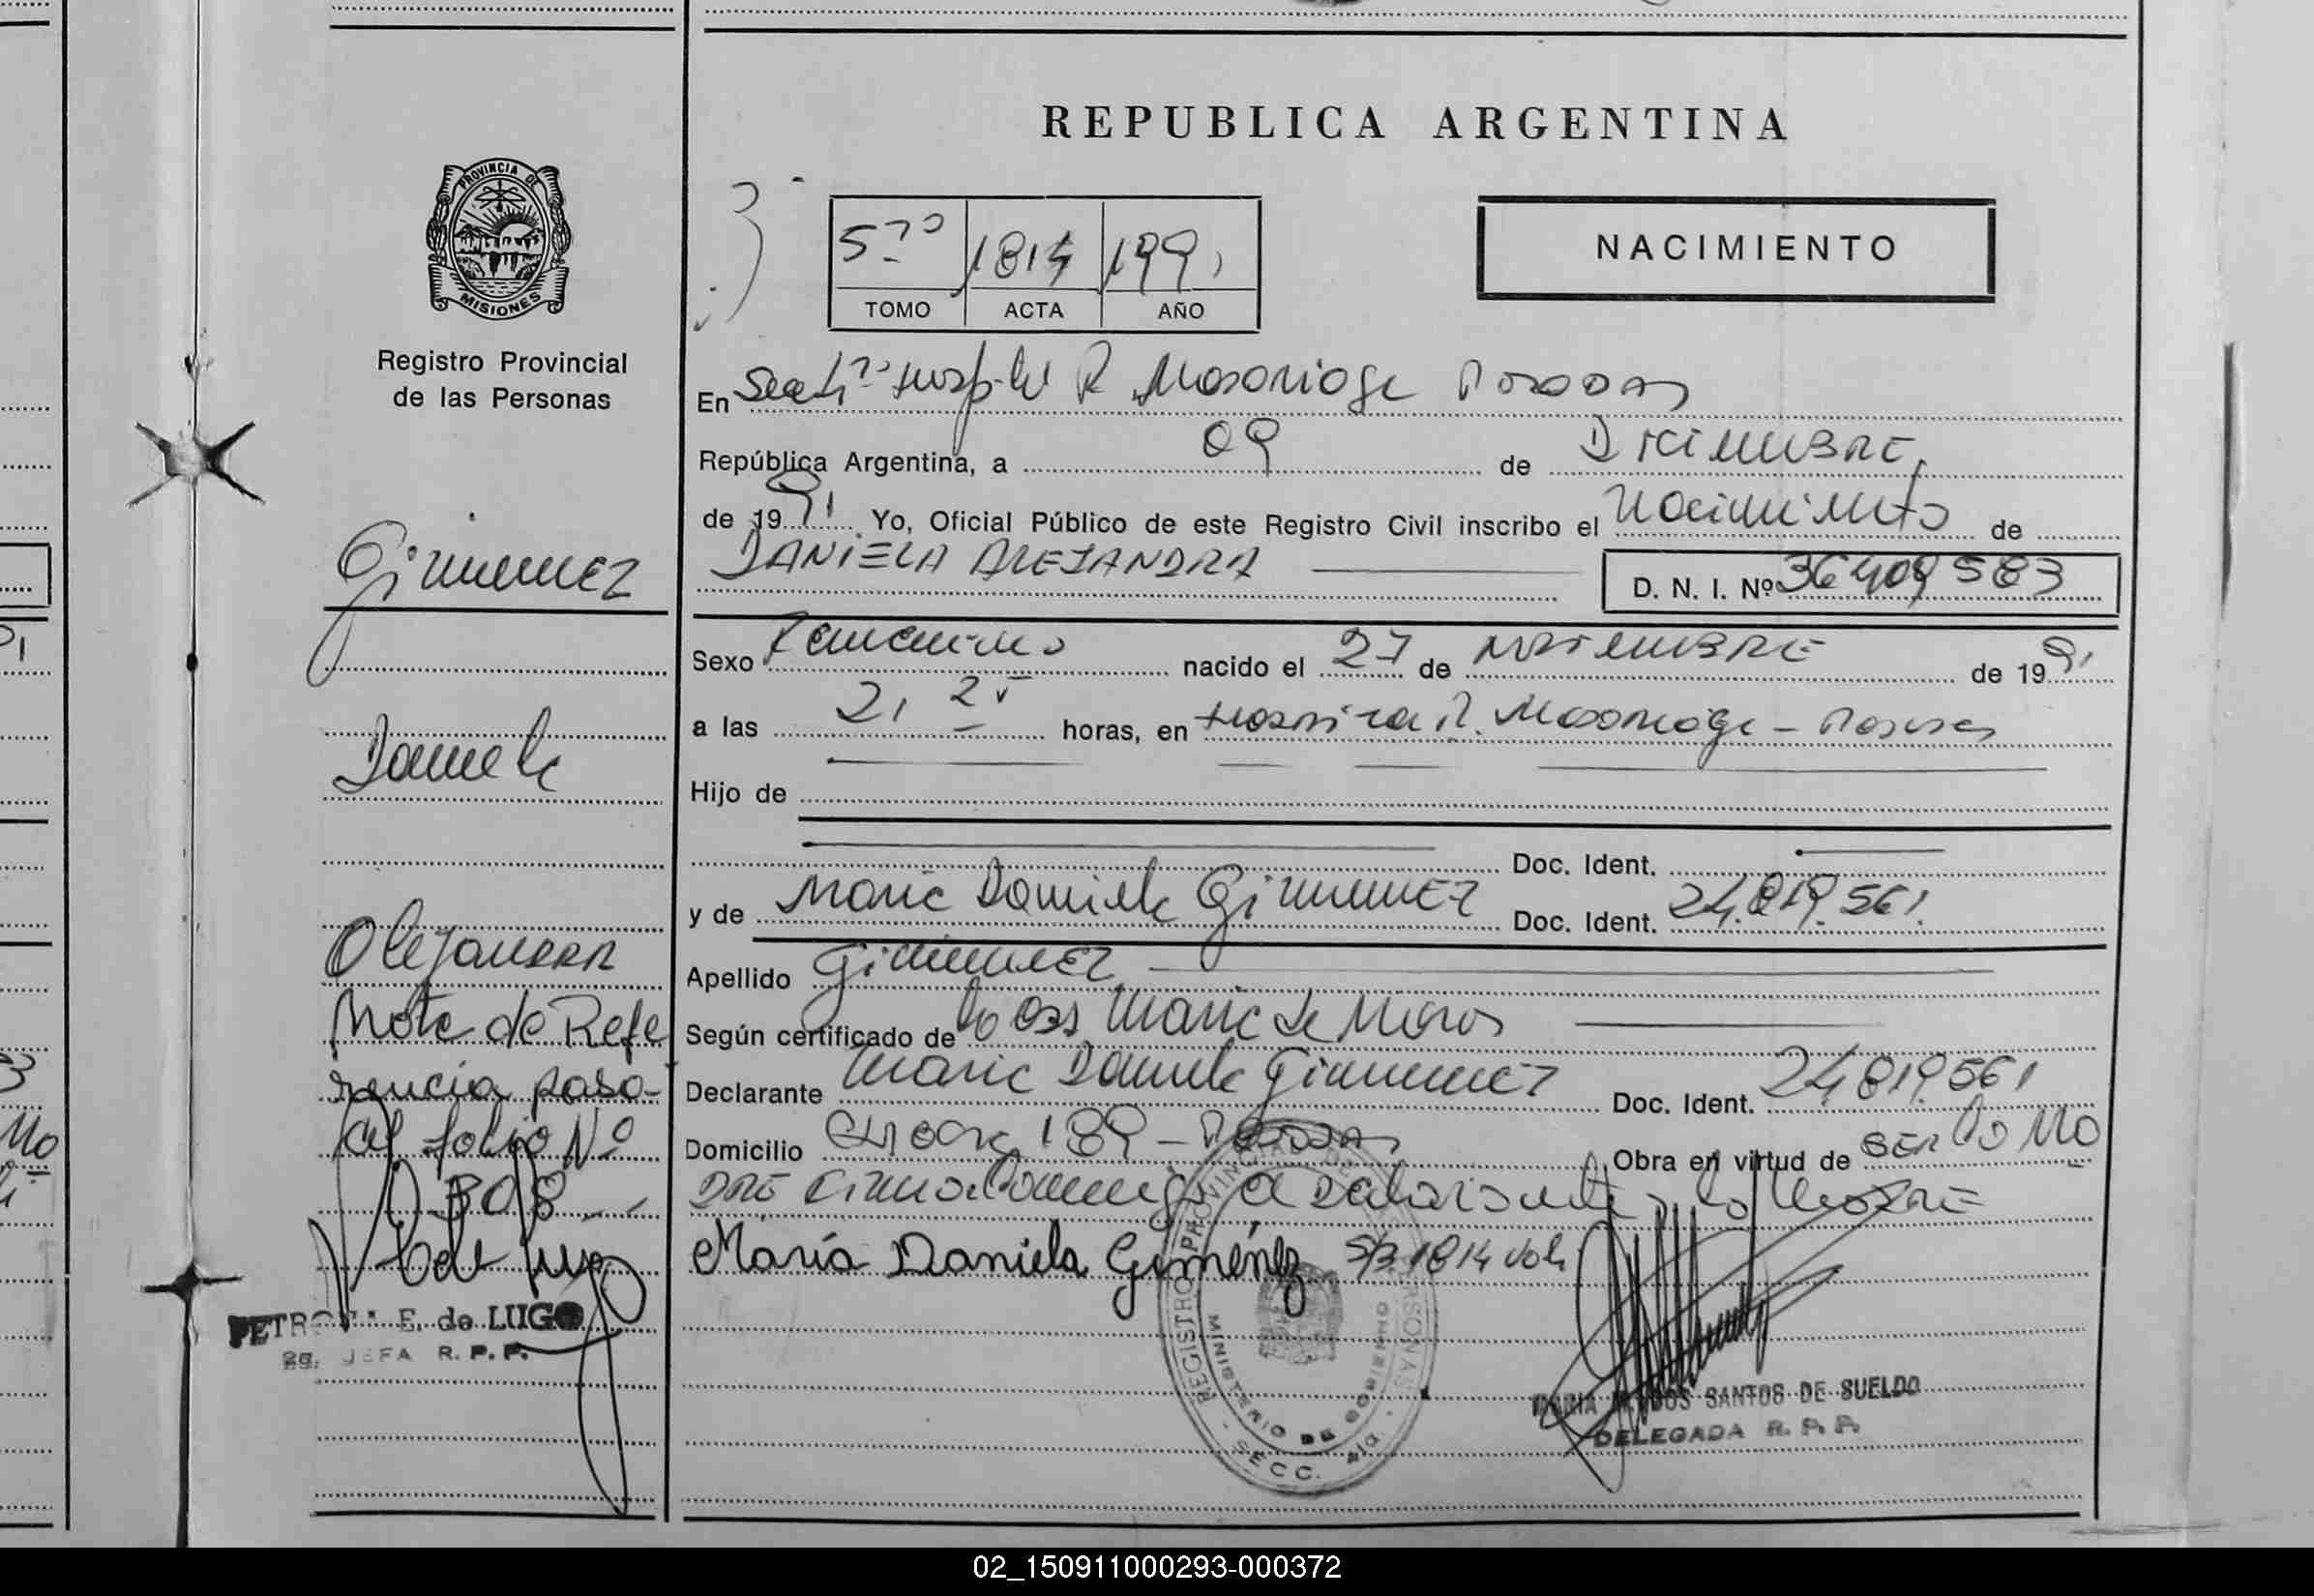 REPUBLICA ARGENTINA
PROVINCIA DE
MISIONES
Registro Provincial
de las Personas
5to 1814 1991
TOMO ACTA AÑO
NACIMIENTO
En R Posadas
República Argentina, a 09 de Diciembre
de 1991 Yo, Oficial Público de este Registro Civil inscribo el Nacimiento de
DANIELA ALEJANDRA
D. N. I. Nº 36409583
Sexo Femenino nacido el 27 de Noviembre de 1991
a las 21 25 horas, en Hospital R. Posadas
Hijo de
Doc. Ident.
y de Maria Daniela Gimenez Doc. Ident. 24.819.561.
Apellido Gimenez
Según certificado de Maria de
Declarante Maria Daniela Gimenez Doc. Ident. 24.819.561
Domicilio 189 - Posadas Obra en virtud de
María Daniela Giménez 1814
Gimenez
Daniela
Alejandra
Nota de Refe
rencia pasa
al folio Nº
308
E. de LUGO
JEFA R. P. P.
REGISTRO PROVINCIAL DE LAS PERSONAS
MINISTERIO DE GOBIERNO
SECC.
SANTOS DE SUELDO
DELEGADA R. P. P.
02_150911000293-000372